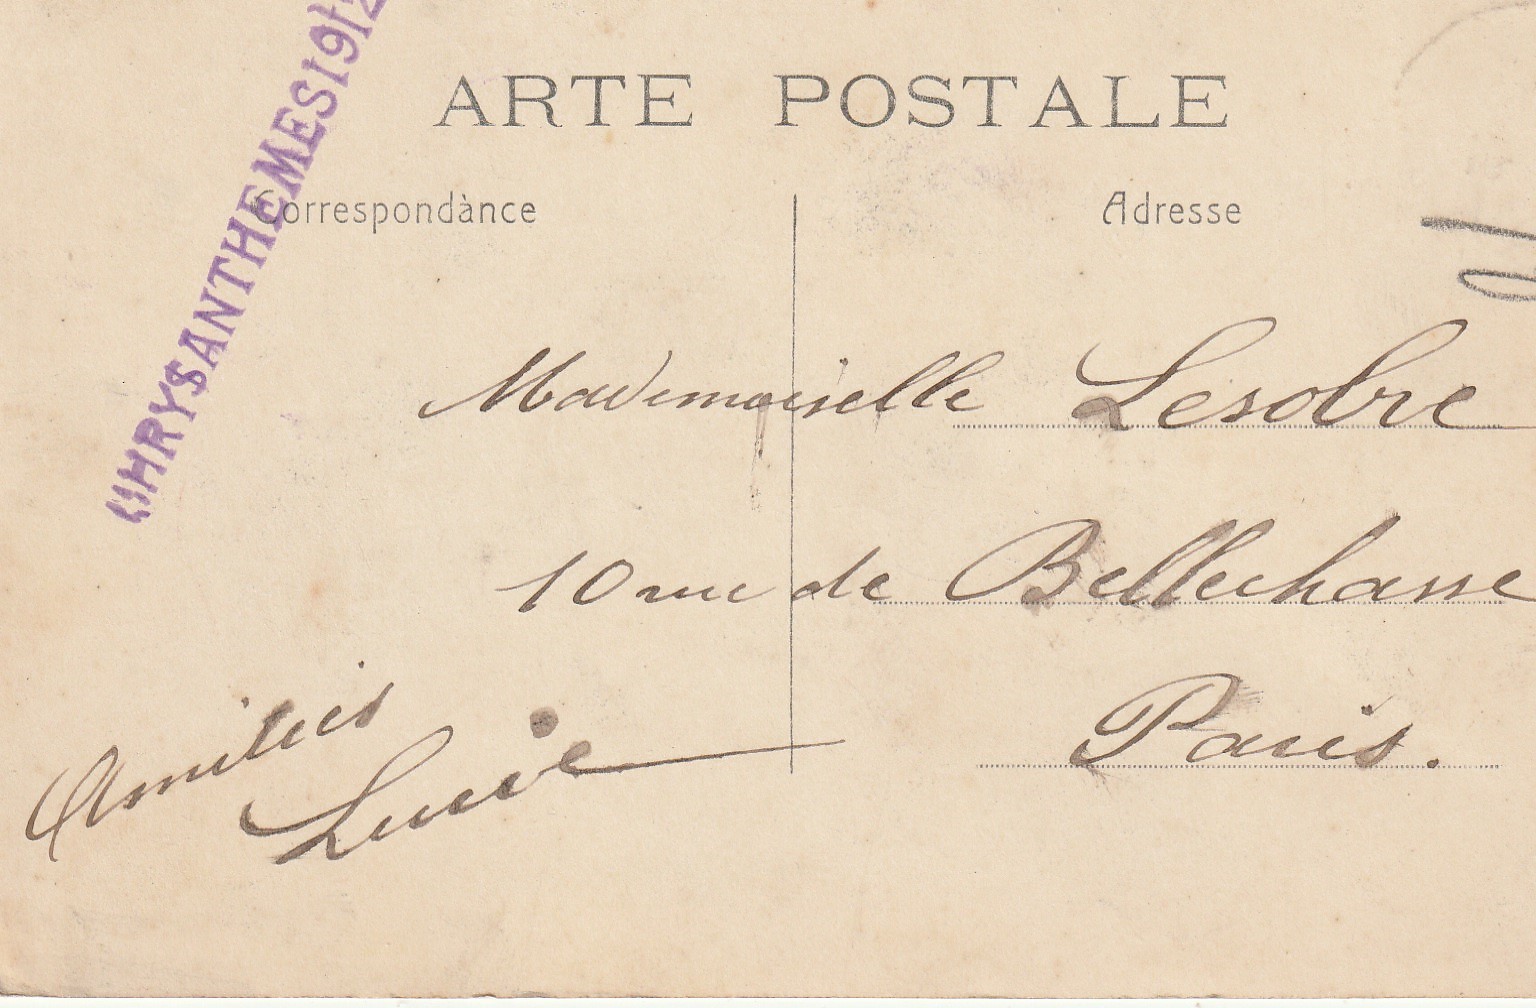 CHRYSANTHEMES 1912
ARTE POSTALE
Correspondànce
Adresse
Mademoiselle Lesobre
10 rue de Bellechasse
Paris.
Amitiés
Lucie